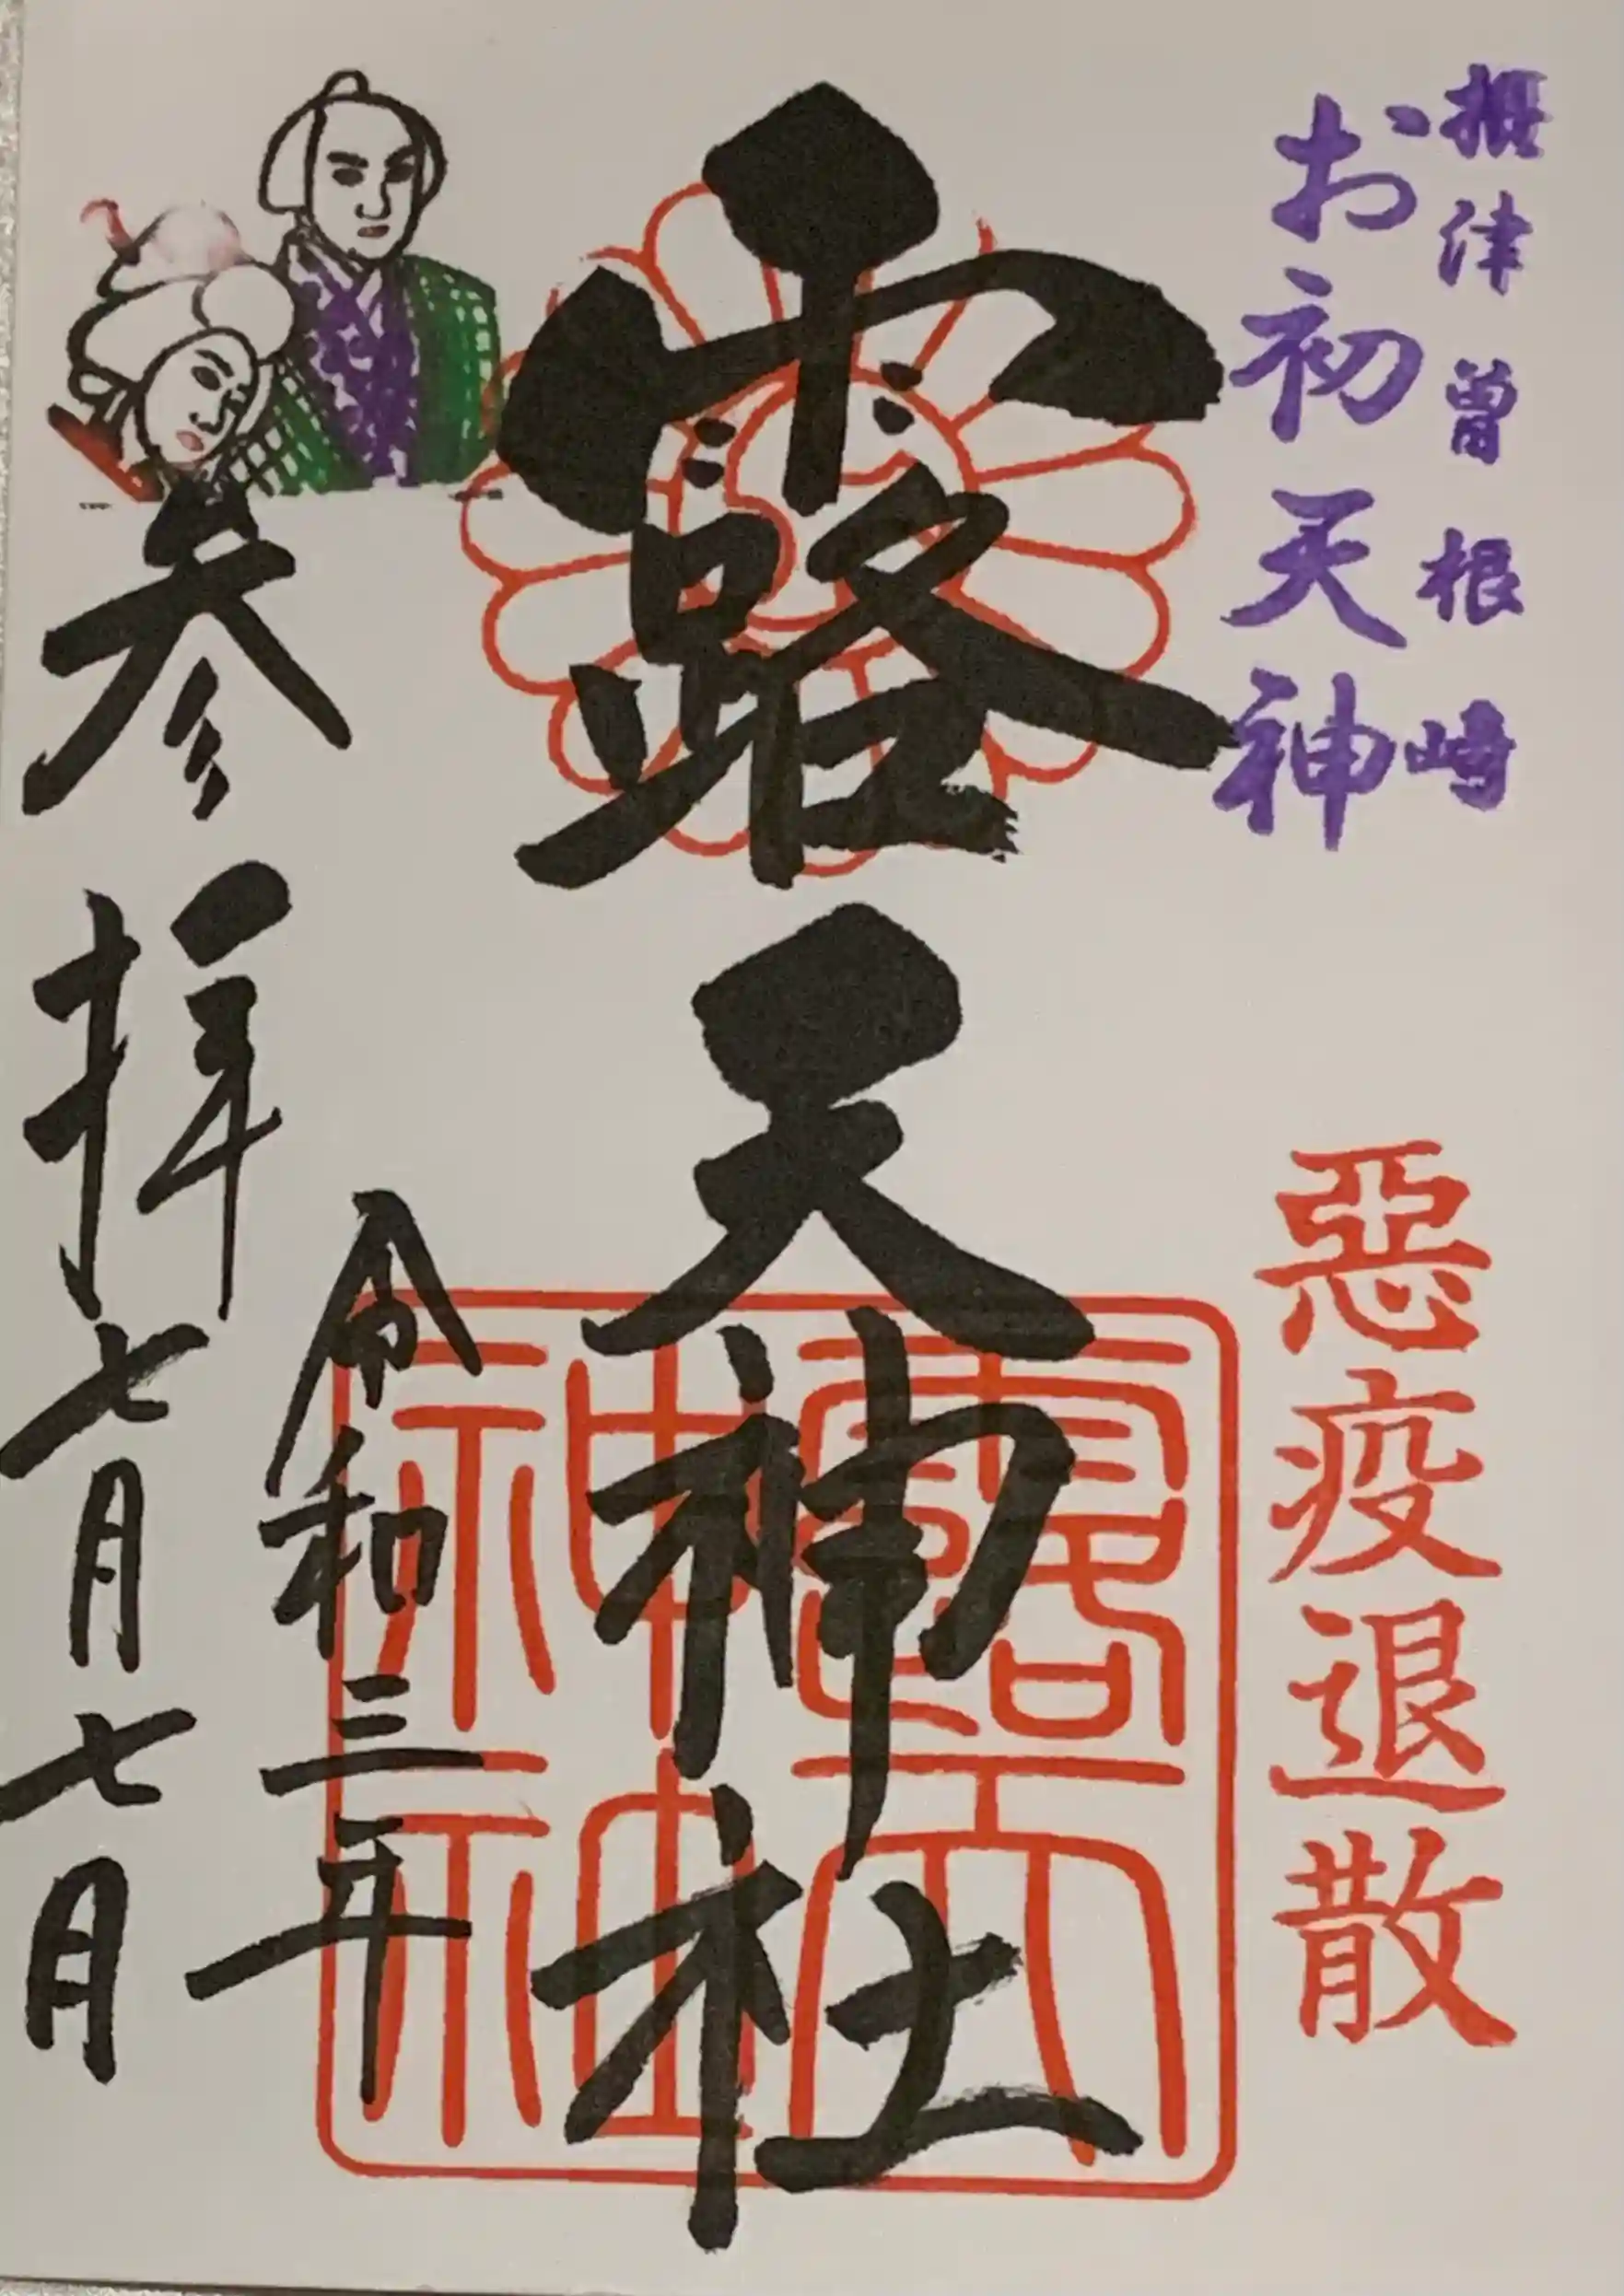 摂津曽根崎
お初天神
惡疫退散
露天神社
露天神社
令和三年
参拝
七月七月